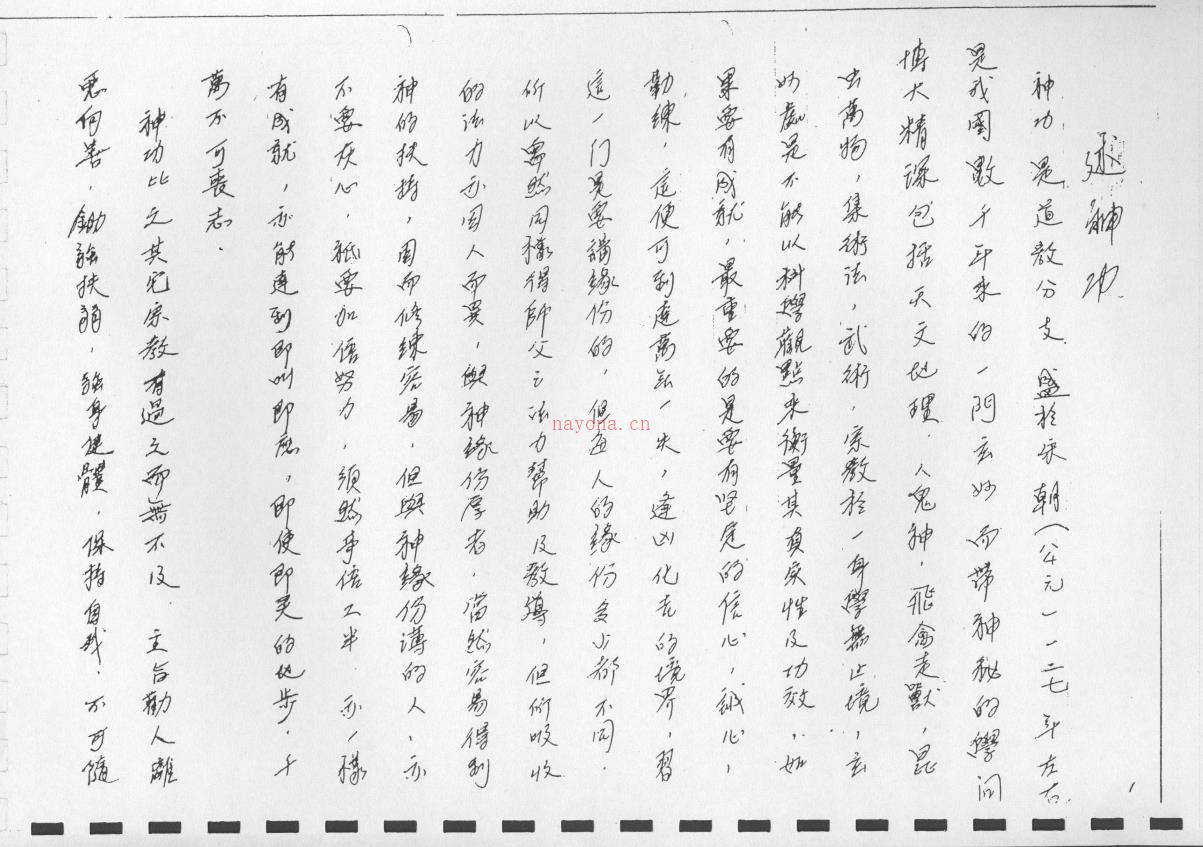 述神功
神功是道教分支盛於宋朝(公元一一二七年左右
是我國數千年來的一門玄妙而帶神秘的學問
博大精深包括天文地理.人鬼神.飛禽走獸,昆
虫萬物,集術法,武術.宗教於一身學無止境,玄
妙處是不能以科學觀點來衡量其真实性及功效,如
果要有成就,最重要的是要有坚定的信心,誠心,
勤練,這便可到達萬無一失,逢凶化吉的境界,習
這一门是要講緣份的,但每人的緣份多少都不同.
所以雖然同樣得師父之法力幫助及教導,但所吸收
的法力亦因人而異,與神緣份厚者.當然容易得到
神的扶持,因而修練容易,但與神緣份薄的人,亦
不要灰心.祇要加倍努力,須然事倍工半 亦一樣
有成就,亦能達到即叫即應,即使即灵的地步.千
萬不可喪志.
神功比之其它宗教有過之而無不及 主旨勸人離
惡向善.鋤強扶弱,強身健體,保持自我.不可隨
1
nayona.cn